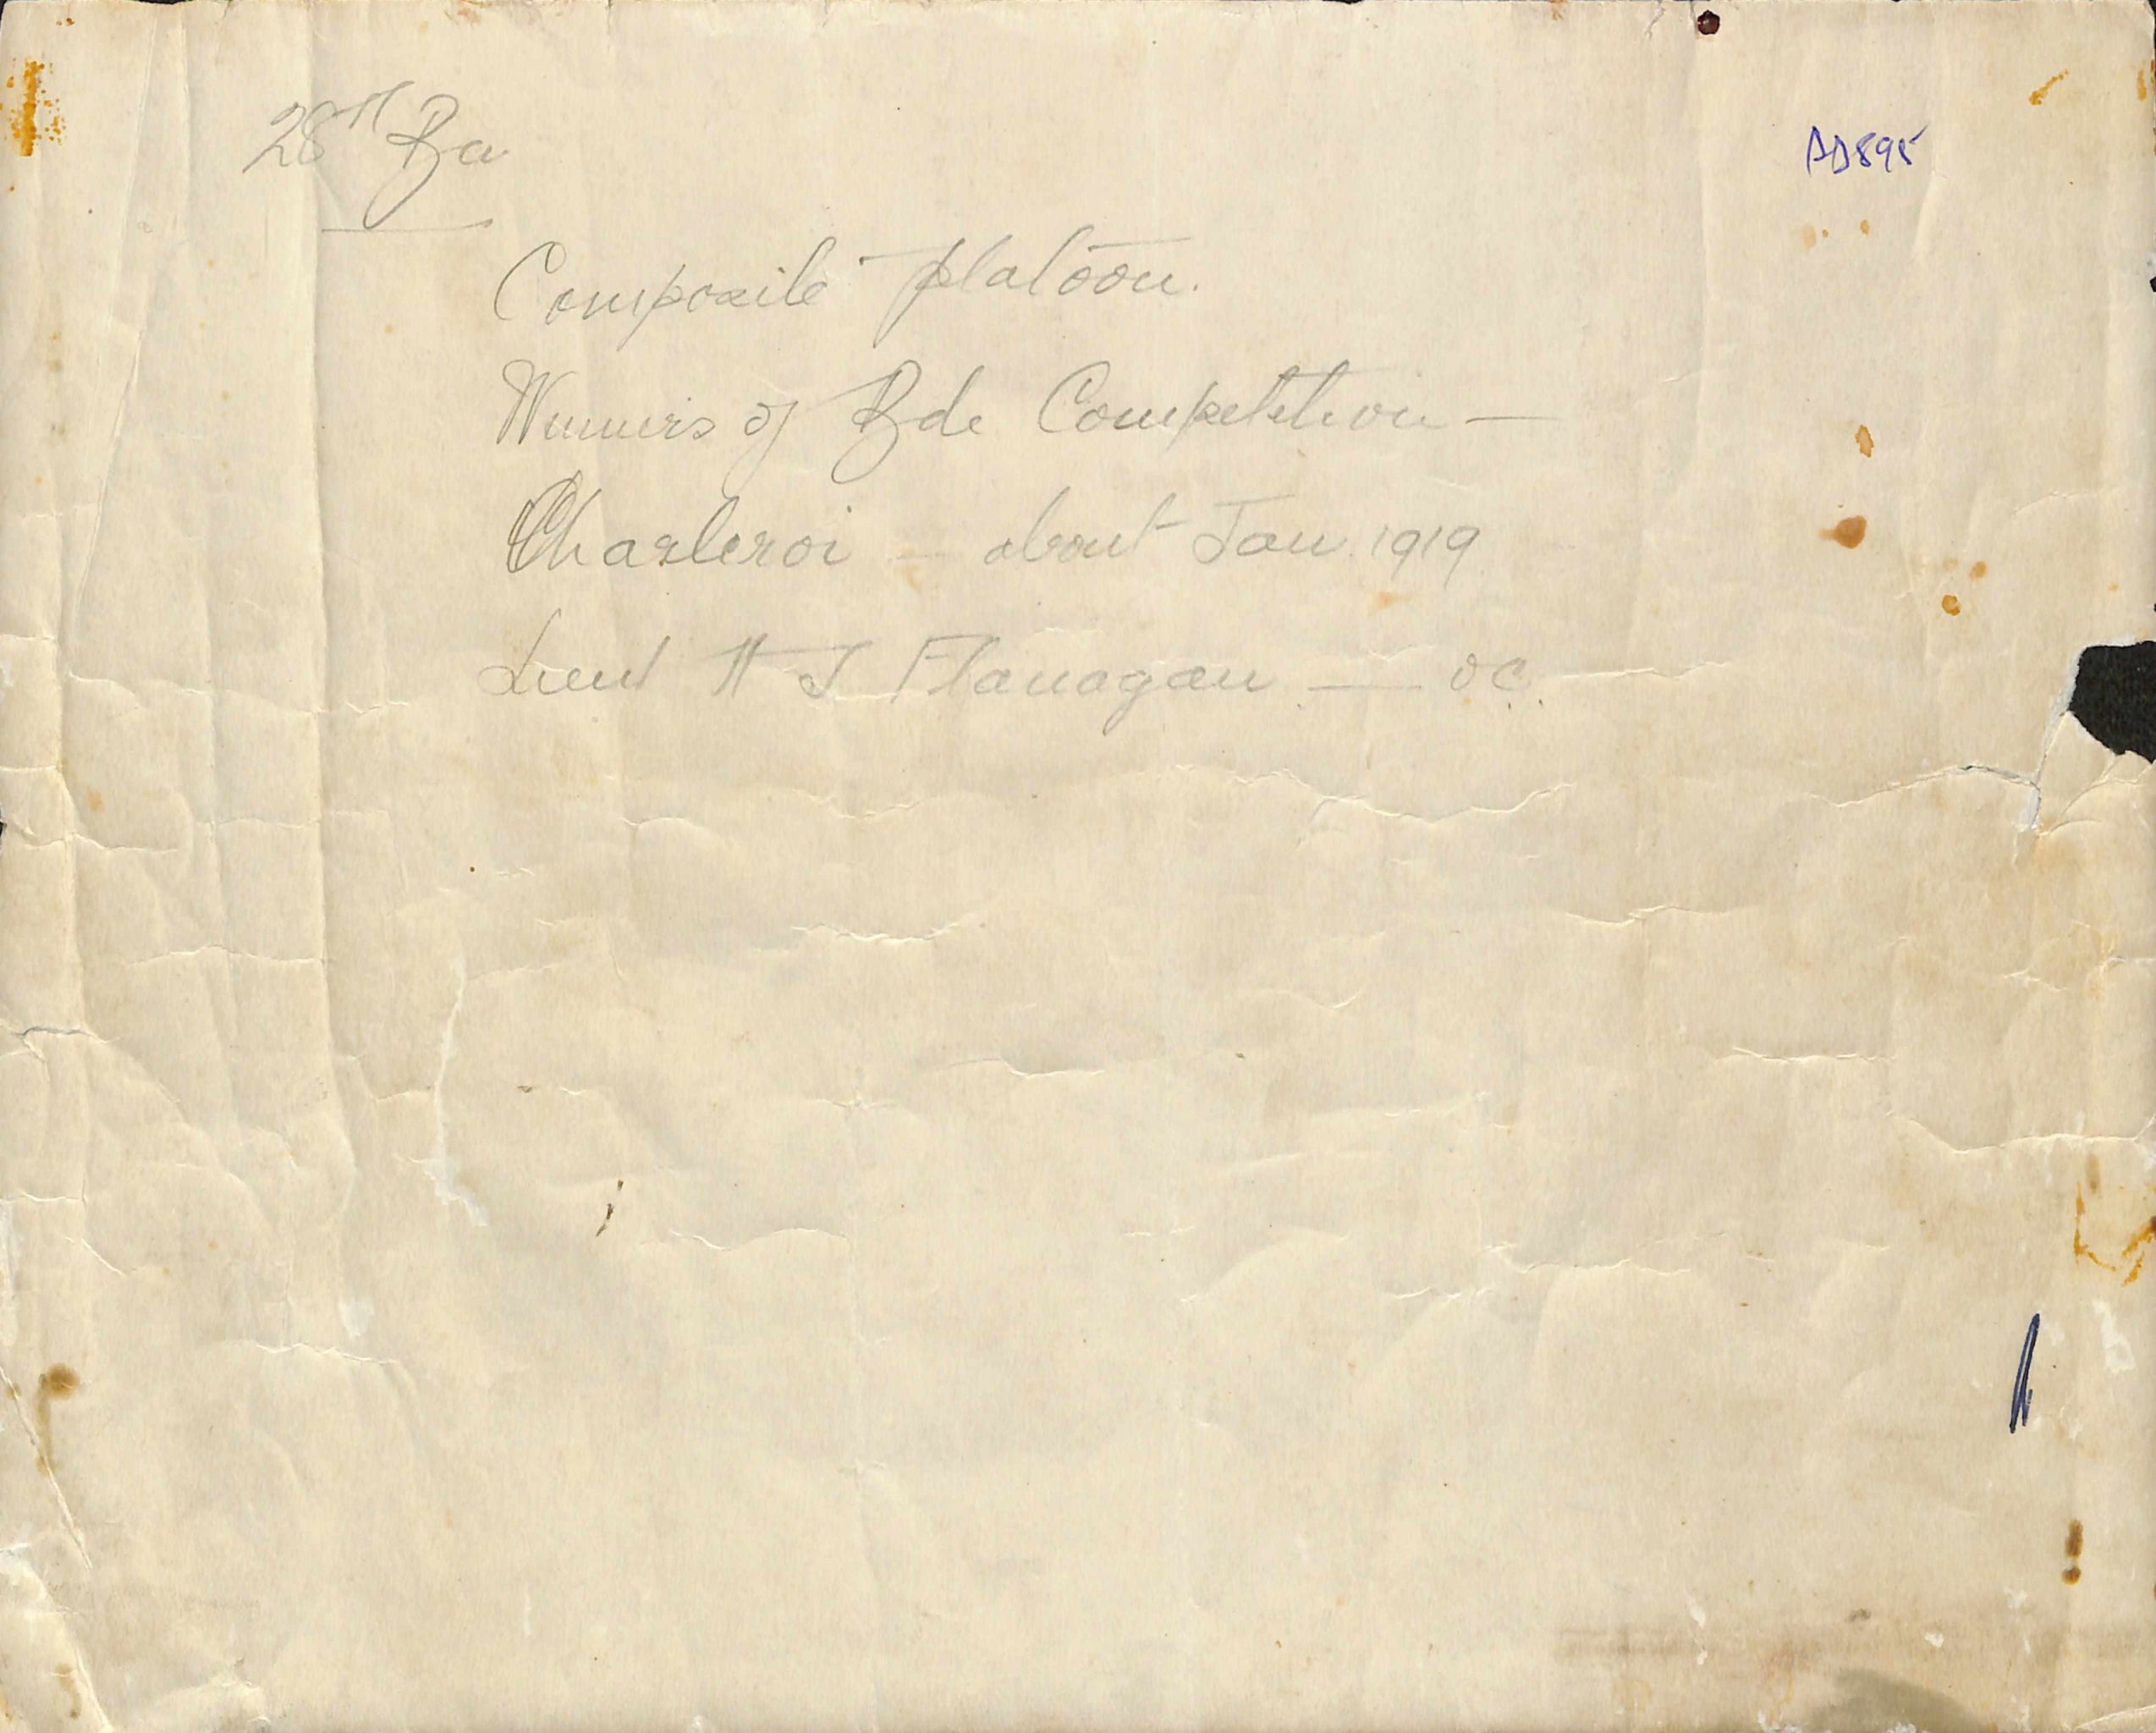 28th Ba
AD895
Composite platoon.
Winners of Bde Competition —
Charleroi — about Jan. 1919
Lieut H J Flanagan — OC. —